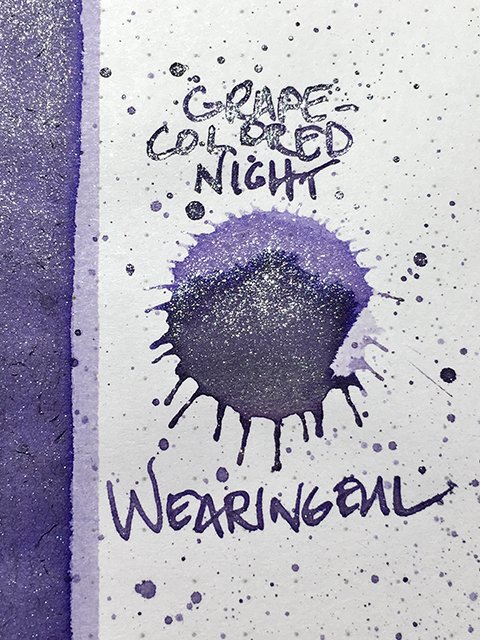 GRAPE-
COLORED
NIGHT
WEARINGEUL